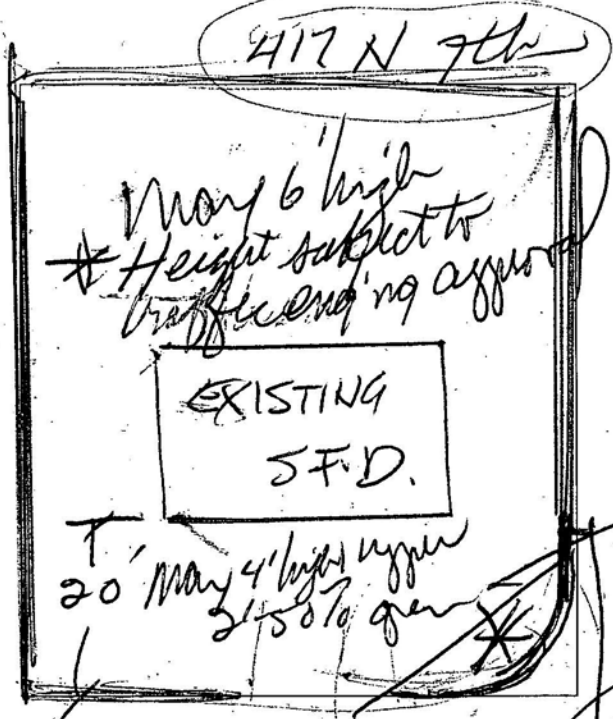 417 N 7th
Max 6' high
* Height subject to
traffic eng'ng approval
EXISTING
S.F.D.
20' Max 4' high upper
2' 50% open
*